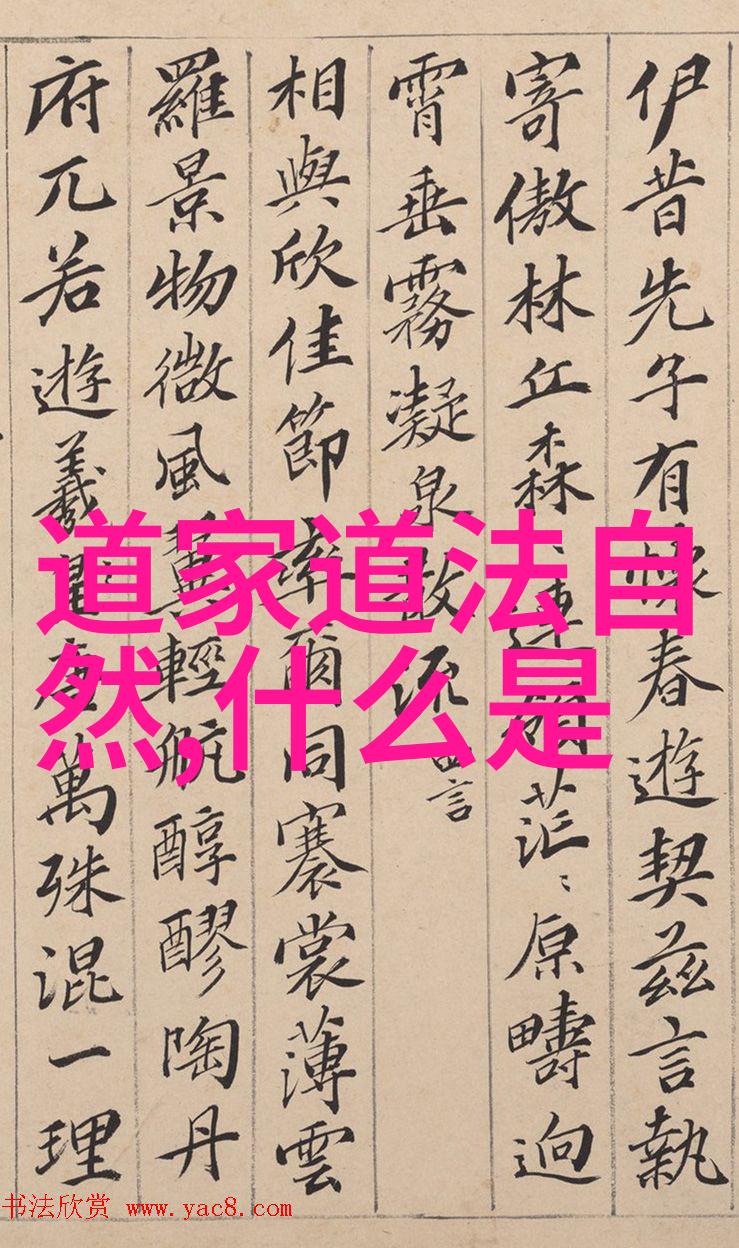 伊昔先子有懷春遊契茲言執
寄傲林丘森ミ連領茫ミ原疇迥
霄垂霧凝泉散流四言
相與欣佳節率爾同褰裳薄雲
羅景物微風翼輕航醇醪陶丹
府兀若遊羲唐萬殊混一理
道家道法自
然,什么是
书法欣赏 www.yac8.com